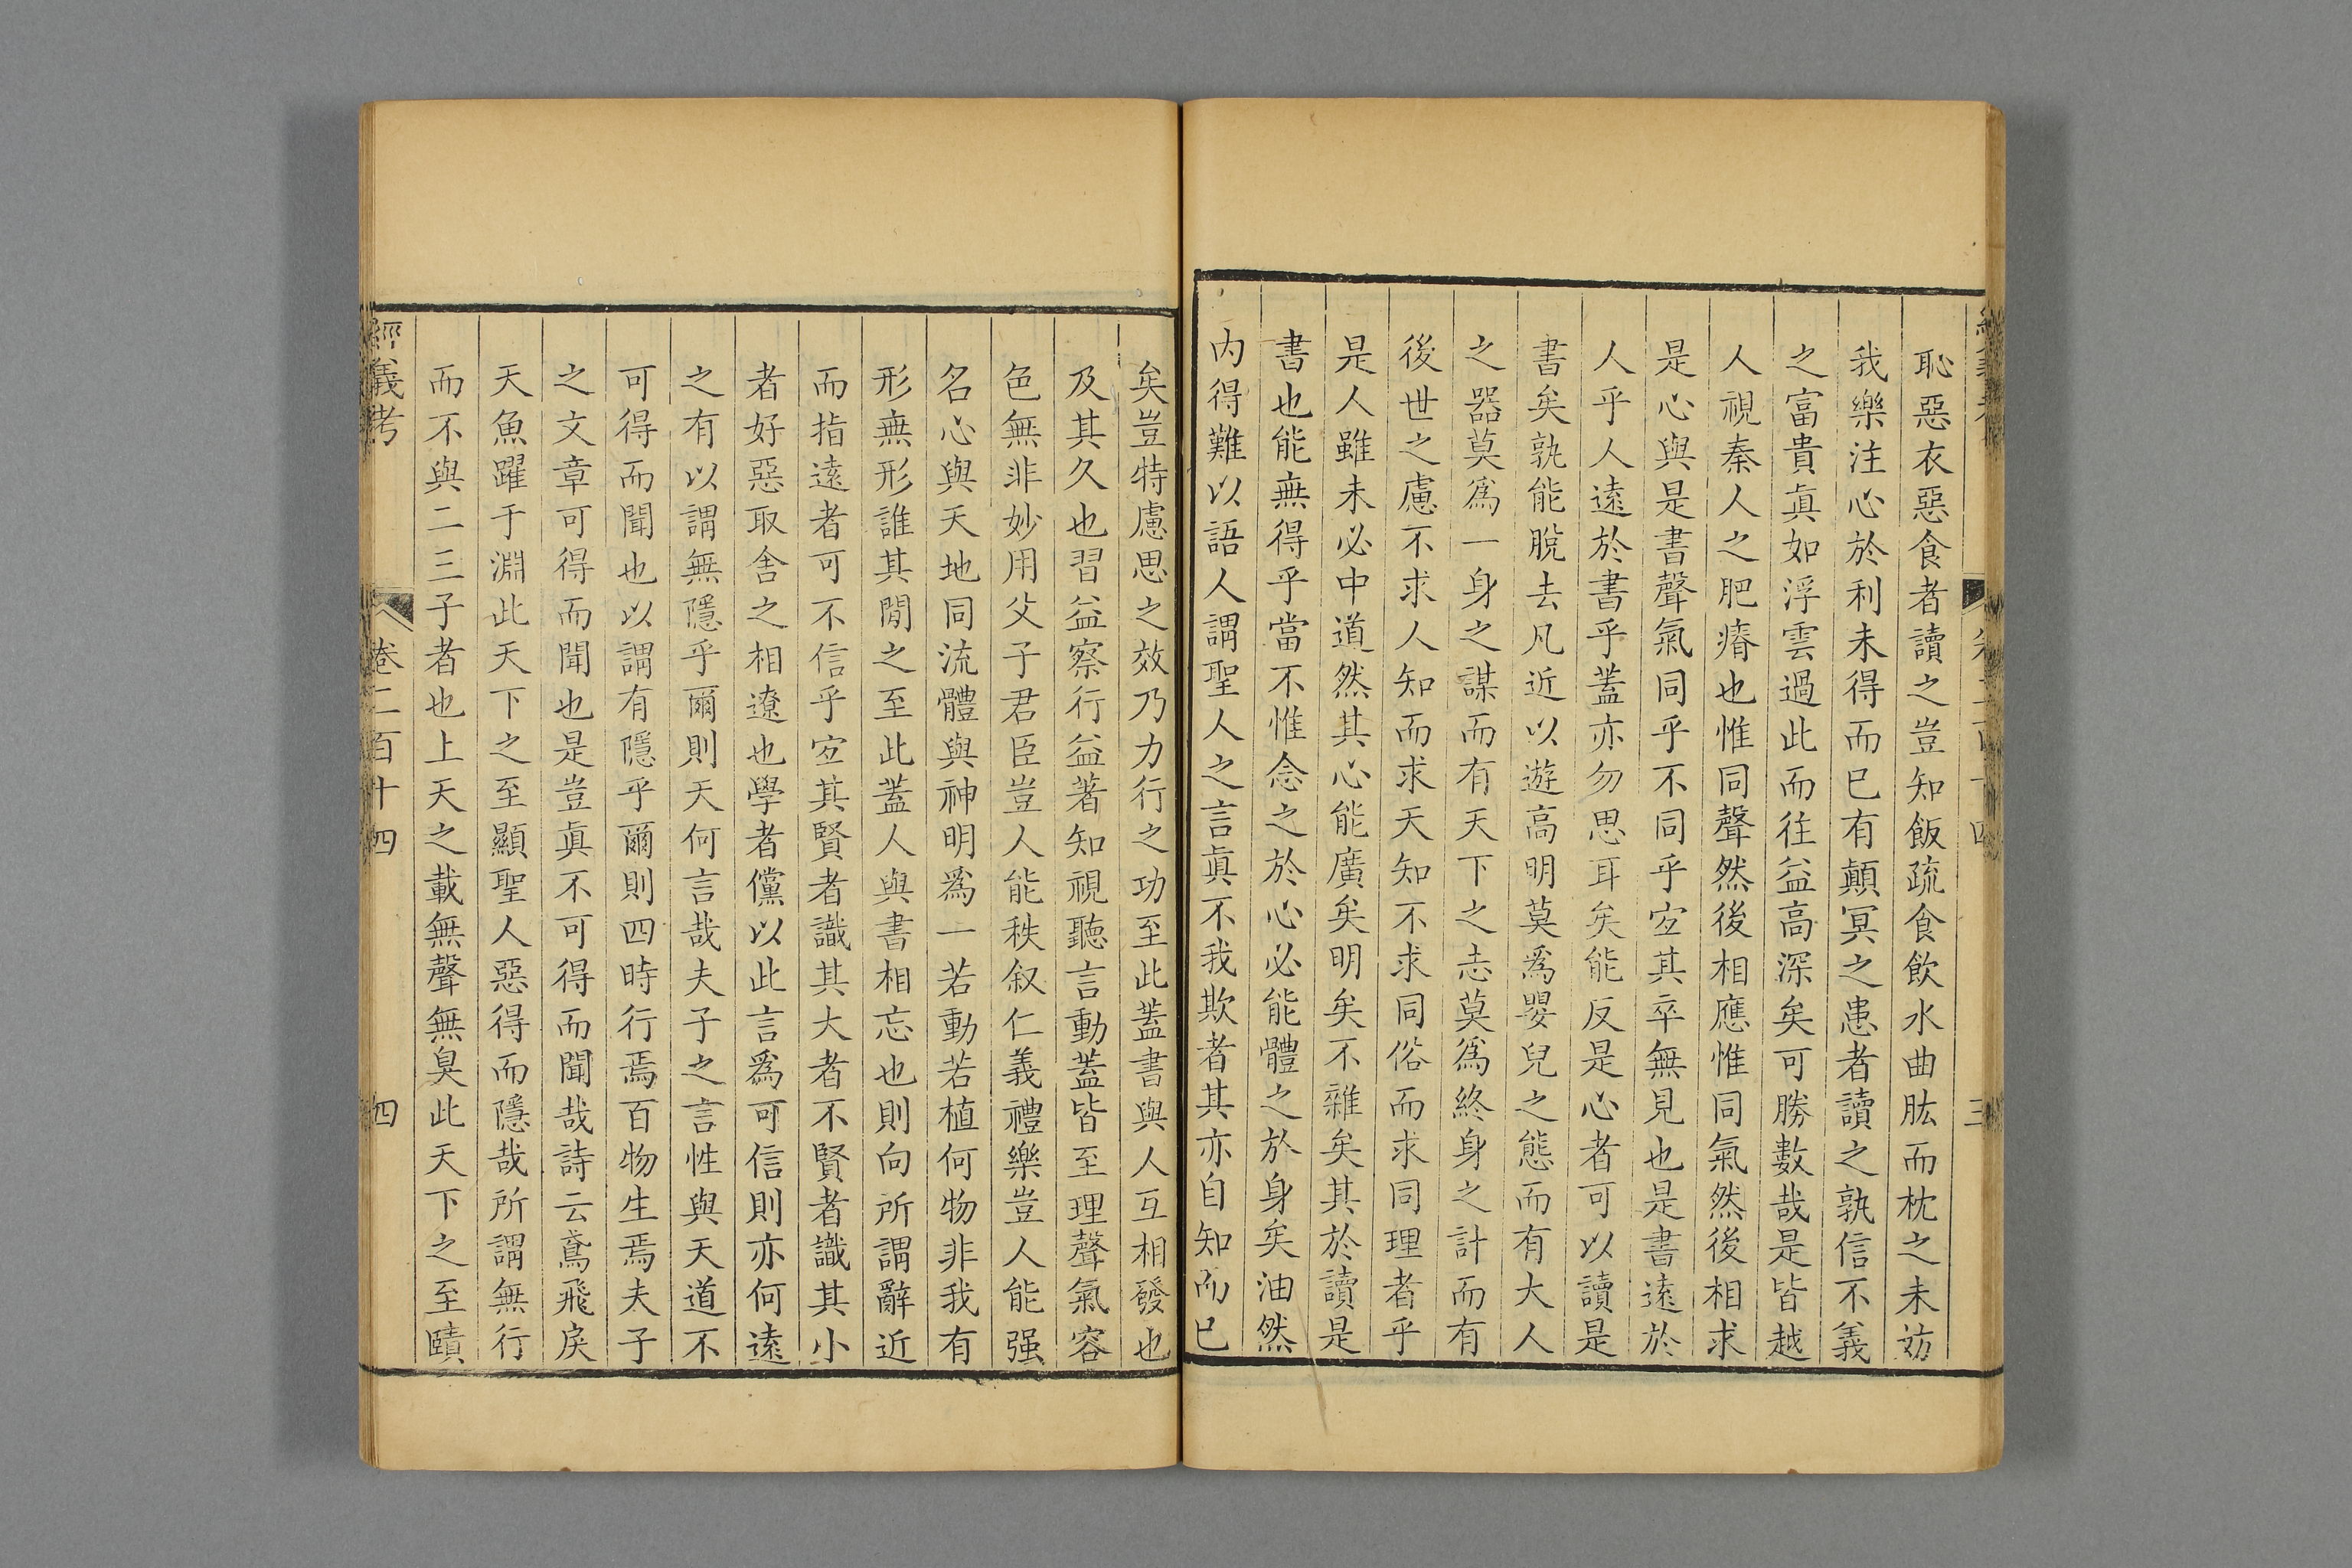 恥惡衣惡食者讀之豈知飯疏食飲水曲肱而枕之未妨
我樂注心於利未得而已有顚冥之患者讀之孰信不義
之富貴眞如浮雲過此而往益高深矣可勝數哉是皆越
人視秦人之肥瘠也惟同聲然後相應惟同氣然後相求
是心與是書聲氣同乎不同乎宐其卒無見也是書遠於
人乎人遠於書乎蓋亦勿思耳矣能反是心者可以讀是
書矣孰能脫去凡近以遊高明莫爲嬰兒之態而有大人
之器莫爲一身之謀而有天下之志莫爲終身之計而有
後世之慮不求人知而求天知不求同俗而求同理者乎
是人雖未必中道然其心能廣矣明矣不雜矣其於讀是
書也能無得乎當不惟念之於心必能體之於身矣油然
内得難以語人謂聖人之言眞不我欺者其亦自知而已
矣豈特慮思之效乃力行之功至此蓋書與人互相發也
及其久也習益察行益著知視聽言動蓋皆至理聲氣容
色無非妙用父子君臣豈人能秩叙仁義禮樂豈人能强
名心與天地同流體與神明爲一若動若植何物非我有
形無形誰其閒之至此蓋人與書相忘也則向所謂辭近
而指遠者可不信乎宐其賢者識其大者不賢者識其小
者好惡取舍之相遼也學者儻以此言爲可信則亦何遠
之有以謂無隱乎爾則天何言哉夫子之言性與天道不
可得而聞也以謂有隱乎爾則四時行焉百物生焉夫子
之文章可得而聞也是豈眞不可得而聞哉詩云鳶飛戾
天魚躍于淵此天下之至顯聖人惡得而隱哉所謂無行
而不與二三子者也上天之載無聲無臭此天下之至賾
經義考 卷二百十四 四